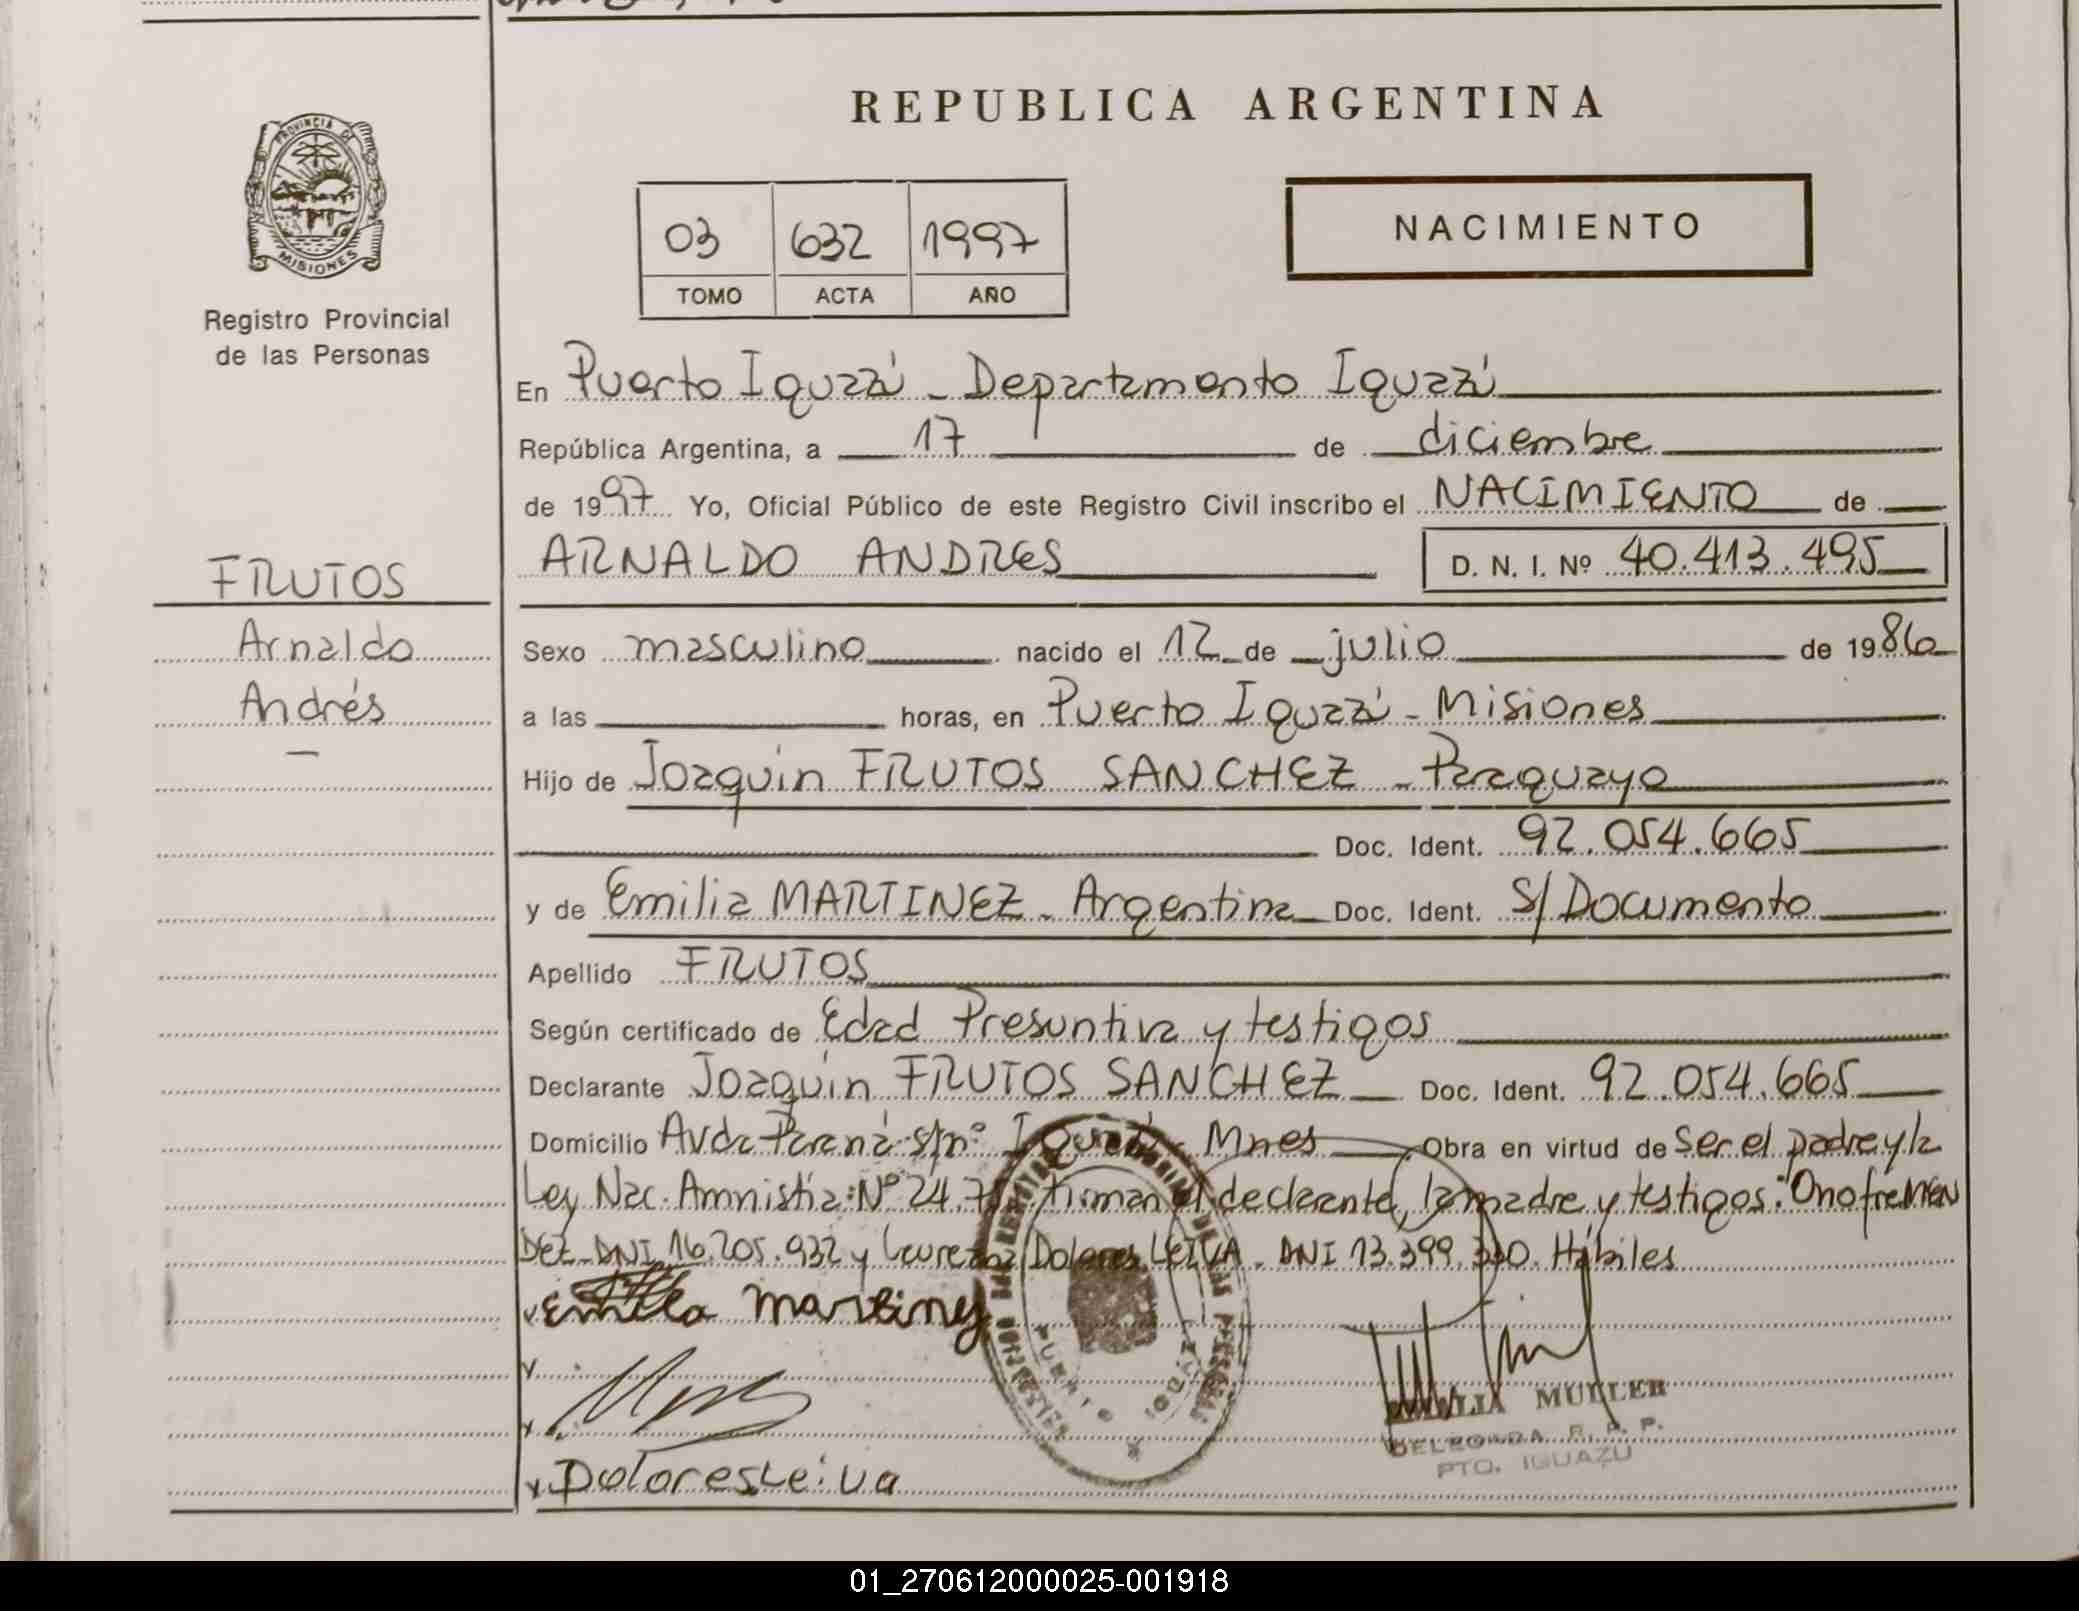 REPUBLICA ARGENTINA
PROVINCIA DE
MISIONES
Registro Provincial
de las Personas
03 632 1997
TOMO ACTA AÑO
NACIMIENTO
En Puerto Iguazú - Departamento Iguazú
República Argentina, a 17 de diciembre
de 1997 Yo, Oficial Público de este Registro Civil inscribo el NACIMIENTO de
FRUTOS
Arnaldo
Andrés
ARNALDO ANDRES D. N. I. Nº 40.413.495
Sexo masculino nacido el 12 de julio de 1986
a las horas, en Puerto Iguazú - Misiones
Hijo de Joaquín FRUTOS SANCHEZ - Paraguayo
Doc. Ident. 92.054.665
y de Emilia MARTINEZ - Argentina Doc. Ident. S/Documento
Apellido FRUTOS
Según certificado de Edad Presuntiva y testigos
Declarante Joaquín FRUTOS SANCHEZ Doc. Ident. 92.054.665
Domicilio Avda Paraná s/nº Iguazú - Mnes Obra en virtud de Ser el padre y la
Ley Nac. Amnistía: Nº 24.7 firman el declarante, la madre y testigos: Onofre MEN
DEZ - DNI 16.205.932 y Dolores LEIVA - DNI 13.399. Hábiles
y Emilia martinez
y
y
y Dolores Leiva
PUERTO IGUAZU
MULLER
DELEGADA R. P. P.
PTO. IGUAZU
01_270612000025-001918